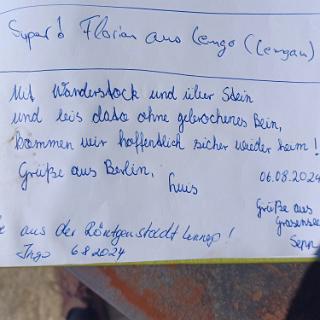 Super! Florian aus Lengo (Lengau)
Mit Wanderstock und über Stein
und bis dato ohne gebrochenes Bein,
kommen wir hoffentlich sicher wieder heim!
Grüße aus Berlin,
06.08.2024
Grüße aus
Sepp
aus der Röntgenstadt Lennep!
Ingo 6.8.2024